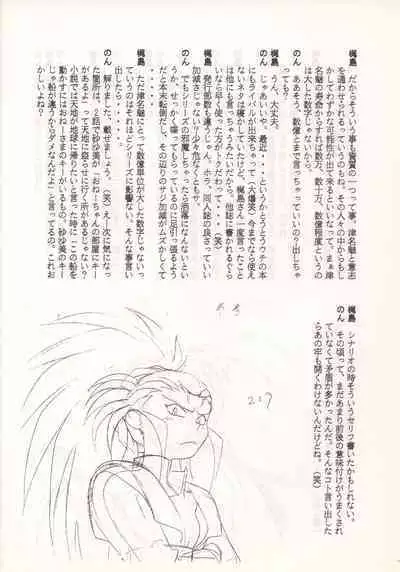 梶島 だからそういう事も資質の一つって事。津名魅と意志
を通わせられるっていうのもね。その人々の中からもし
かしてわずかな可能性が出て来るといいなって。まぁ津
名魅の寿命からすれば数万、数十万、数億年程度というの
は大した数字じゃないし。
のん ああそう、数億とまで言っちゃっていいの？出しちゃ
っても？
梶島 う、大丈夫。
のん じゃあいいや、最近・・・というかとうとうウチの本
にもライバルが出来ちゃって・・・（大爆笑）今までなら使え
ないネタは寝かしてたけど、梶島さん一度言ったこと
は他にも言っちゃうみたいだから、他誌に書かれるぐら
いなら早く使った方がトクだわって・・・（笑）
梶島 発行部数も違うしなぁ。ホラ、同人誌の良さっていい
加減さじゃない？多少危なくともや・・・
のん でもシリーズの邪魔しちゃったら洒落になんないとい
うか、せっかく喋ってもらっているのに足引っ張るよう
だと本末転倒だし、その辺りのサジ加減がムズかしくて
・・・・・。
梶島 ただ津名魅にとって数億年単位が大した数字じゃないっ
ていうのはそれほどシリーズに影響ない。そんな事言い
出したら・・・・
のん 解りました、載せましょう。（笑）え〜次に気になっ
た箇所は、２話で砂沙美が「おねーさまの部屋にキーが
あるよ」って天地に窃らせに行く所があるじゃない？
小説では天地が地球に帰りたいと言った時に「この船を
動かすにはおねーさまのキーがいるもの。これお
じゃ船が違うからダメなんだよ」と言ってるの。これお
かしいよね？
梶島 シナリオの時そういうセリフ書いたかもしれない。
のん その頃って、まだあまり前後の意味付けがうまくされ
ていなくて矛盾が多かったんだ。そんなコト言い出した
らあの牢も開くわけないんだけどね。（笑）